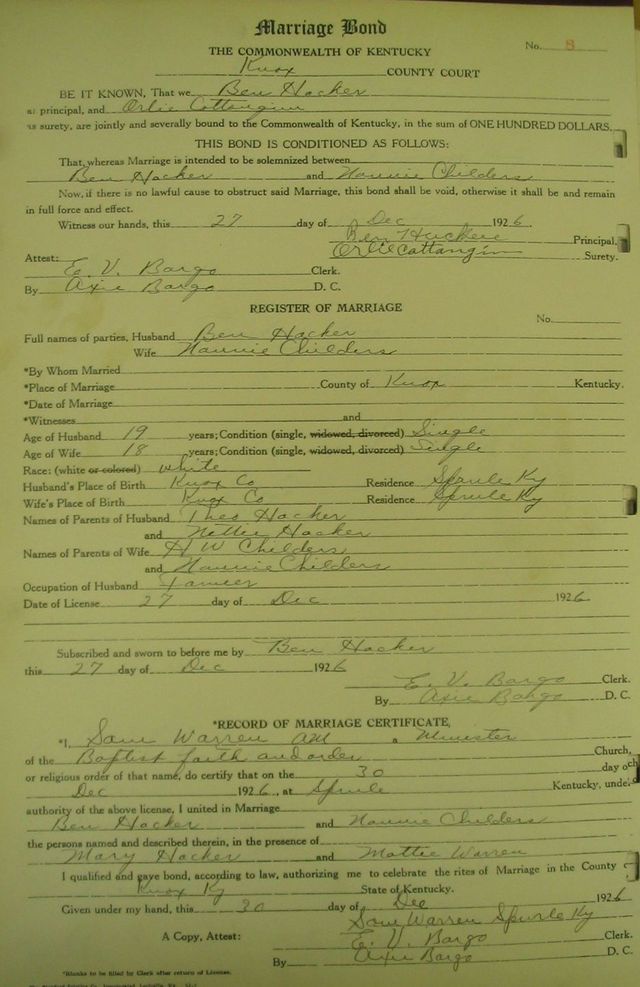 Marriage Bond
No. 8
THE COMMONWEALTH OF KENTUCKY
Knox COUNTY COURT
BE IT KNOWN, That we Ben Hacker
as principal, and Orlie Cottongim
as surety, are jointly and severally bound to the Commonwealth of Kentucky, in the sum of ONE HUNDRED DOLLARS.
THIS BOND IS CONDITIONED AS FOLLOWS:
That, whereas Marriage is intended to be solemnized between
Ben Hacker and Nannie Childers
Now, if there is no lawful cause to obstruct said Marriage, this bond shall be void, otherwise it shall be and remain
in full force and effect.
Witness our hands, this 27 day of Dec 1926
Ben Principal,
Orlie Cottongim Surety.
Attest:
E. V. Bargo Clerk.
By Axie Bargo D. C.
REGISTER OF MARRIAGE
No.
Full names of parties, Husband Ben Hacker
Wife Nannie Childers
*By Whom Married
*Place of Marriage County of Knox Kentucky.
*Date of Marriage
*Witnesses and
Age of Husband 19 years; Condition (single, widowed, divorced) Single
Age of Wife 18 years; Condition (single, widowed, divorced) Single
Race: (white or colored) white
Husband's Place of Birth Knox Co Residence Sprule Ky
Wife's Place of Birth Knox Co Residence Sprule Ky
Names of Parents of Husband Theo Hacker
and Nettie Hacker
Names of Parents of Wife H W Childers
and Nannie Childers
Occupation of Husband Farmer
Date of License 27 day of Dec 1926
Subscribed and sworn to before me by Ben Hacker
this 27 day of Dec 1926
E. V. Bargo Clerk.
By Axie Bargo D. C.
*RECORD OF MARRIAGE CERTIFICATE,
*I, Sam Warren a Minister
of the Baptist faith and order Church,
or religious order of that name, do certify that on the 30 day of
Dec 1926, at Sprule Kentucky, under
authority of the above license, I united in Marriage
Ben Hacker and Nannie Childers
the persons named and described therein, in the presence of
Mary Hacker and Mattie Warren
I qualified and gave bond, according to law, authorizing me to celebrate the rites of Marriage in the County
Knox Ky State of Kentucky.
Given under my hand, this 30 day of Dec 1926
Sam Warren Spurle Ky
A Copy, Attest: E. V. Bargo Clerk.
By Axie Bargo D. C.
*Blanks to be filled by Clerk after return of License.